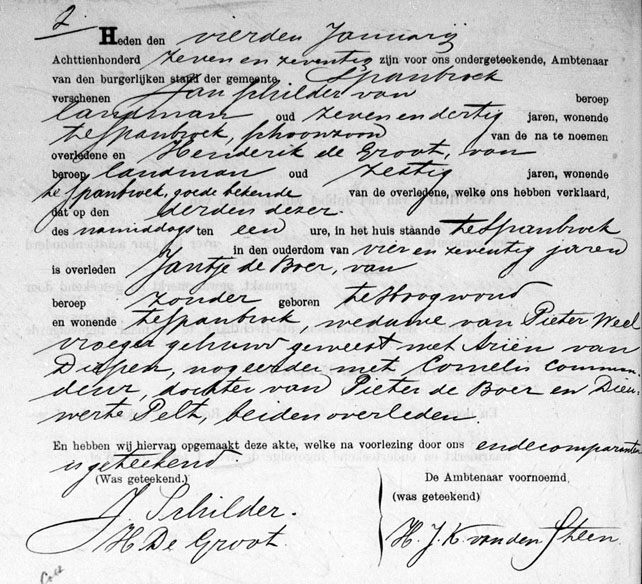 2
Heden den vierden Januarij
Achttienhonderd zeven en zeventig zijn voor ons ondergeteekende, Ambtenaar
van den burgerlijken stand der gemeente, Spanbroek
verschenen Jan Schilder van beroep
landman oud zeven en dertig jaren, wonende
te Spanbroek, schoonzoon van de na te noemen
overledene en Henderik de Groot, van
beroep landman oud zestig jaren, wonende
te Spanbroek, goede bekende van de overledene, welke ons hebben verklaard,
dat op den derden dezer
des namiddags ten een ure, in het huis staande te Spanbroek
in den ouderdom van vier en zeventig jaren
is overleden Jantje de Boer, van
beroep zonder geboren te Hoogwoud
en wonende te Spanbroek weduwe van Pieter Weel
vroeger gehuwd geweest met Ariën van
Diepen, nog eerder met Cornelis Commen
deur, dochter van Pieter de Boer en Dieu-
werte Pelt, beiden overleden.
En hebben wij hiervan opgemaakt deze akte, welke na voorlezing door ons en de comparanten
is geteekend.
(Was geteekend.)
J. Schilder.
H. De Groot.
De Ambtenaar voornoemd,
(was geteekend)
H. J. K. van den Steen